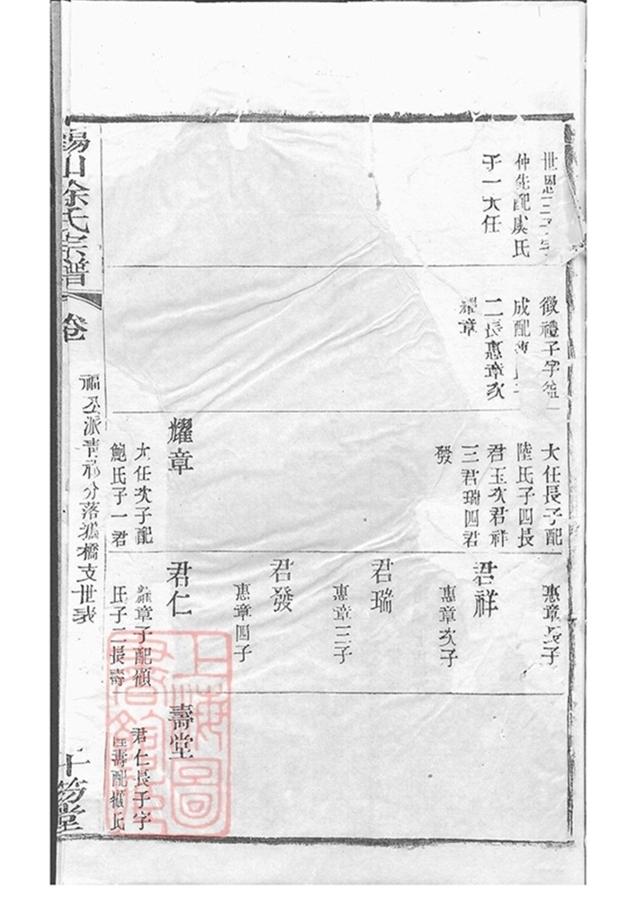 世恩三子字
仲先配虞氏
子一大任
徵禮子字
成配
二長惠章次
耀章
大任長子配
陸氏子四長
君玉次君祥
三君瑞四君
發
耀章
大任次子配
鮑氏子一君
惠章長子
君祥
惠章次子
君瑞
惠章三子
君發
惠章四子
君仁
耀章子配顧
氏子二長壽
壽堂
君仁長子字
壽配 氏
錫山徐氏宗譜
卷
福五派青祁分落狐橋支世表
十笏堂
上海圖書館藏